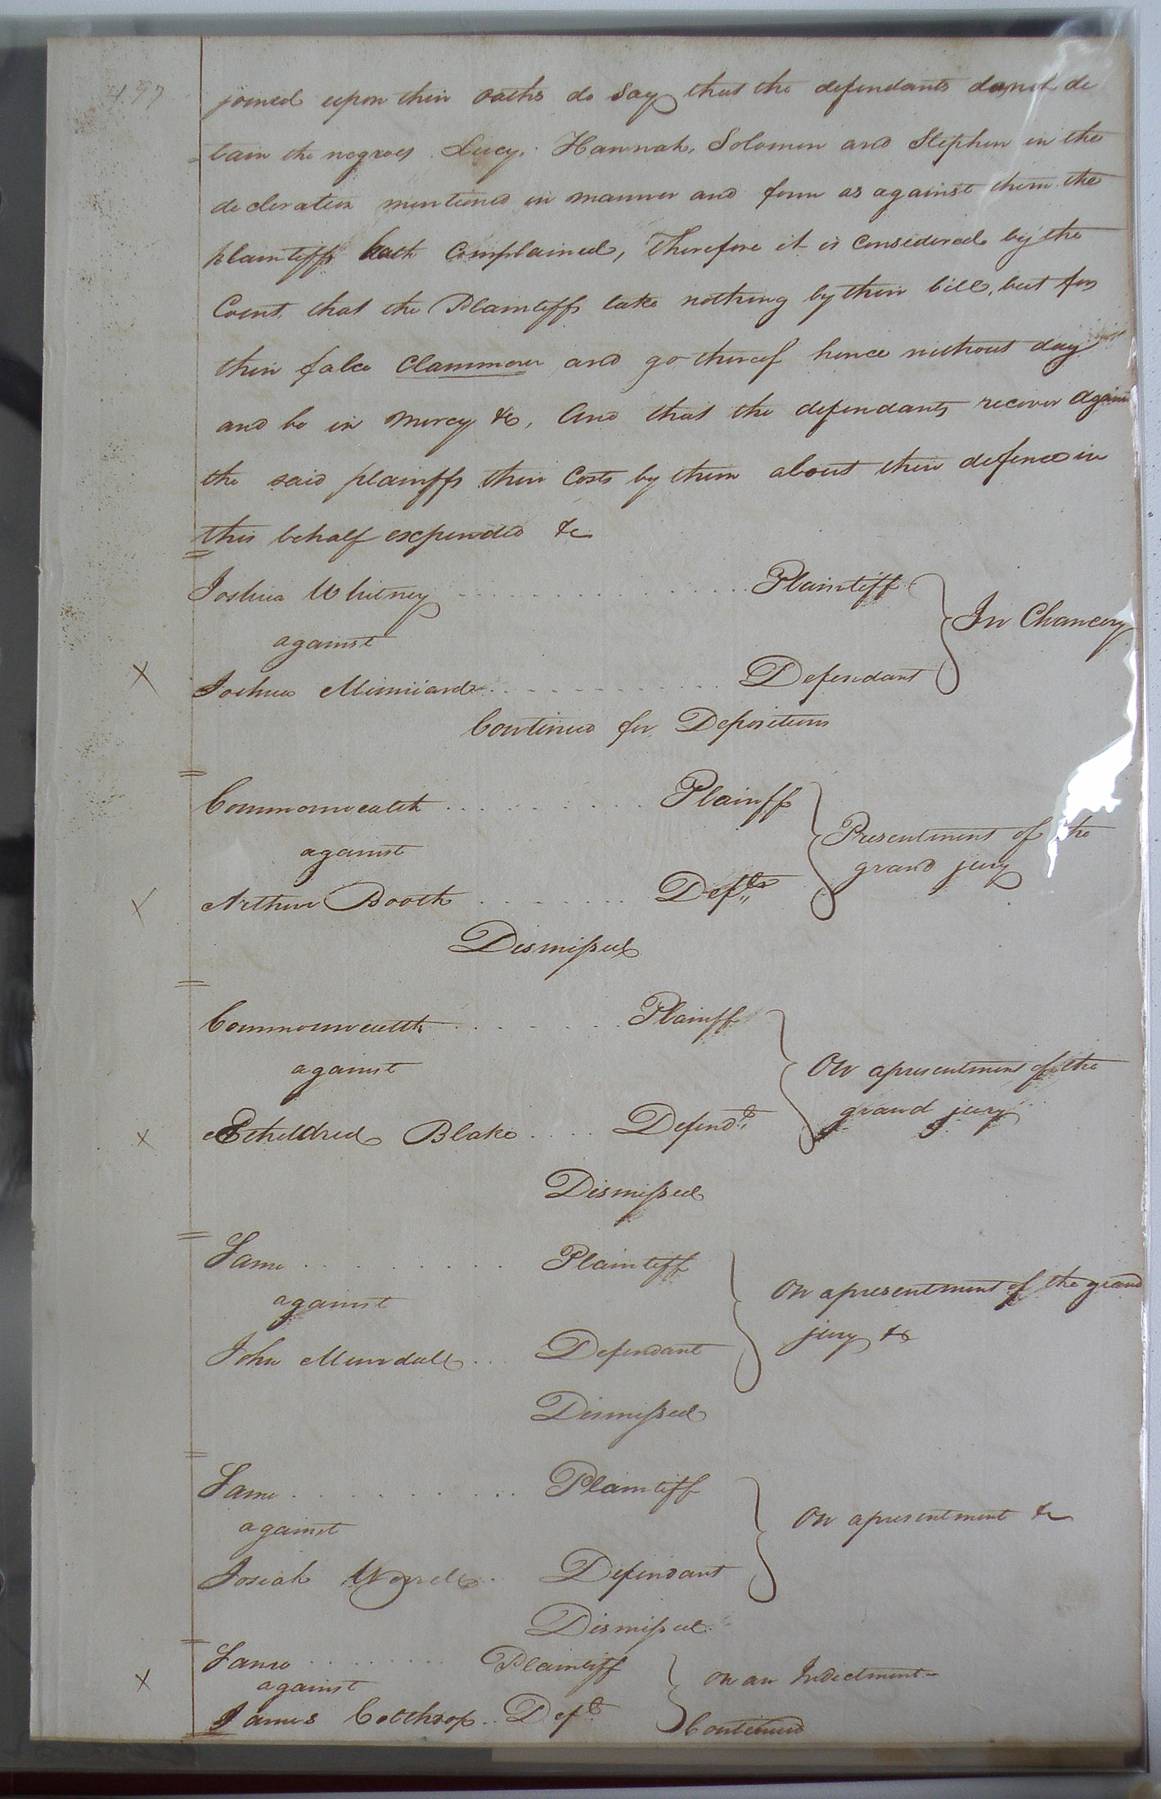 497
joined upon thier oaths do say that the defendants do not de
tain the negroes Lucy, Hannah, Solomon and Stephen in the
decleration mentioned in manner and form as against them the
plaintiffs hath complained, Therefore it is considered by the
Court that the Plaintiffs take nothing by thier bill, but for
thier false Clammour and go thereof hence without day
and be in mercy &c, And that the defendants recover against
the said plainffs thier Costs by them about thier defence in
this behalf expended &c
Joshua Whitney Plaintiff
against In Chancery
Joshua Defendant
Continued for Depositions
Commonwealth Plainff
against Presentment of the
grand jury
Arthur Booth Defts
Dismissed
Commonwealth Plainff
against On apresentment of the
grand jury
Etheldred Blake Defendt
Dismissed
Same Plaintiff
against On apresentment of the grand
jury &c
John Mundall Defendant
Dismissed
Same Plaintiff
against On apresentment &c
Josiah Worrell Defendant
Dismissed
Same Plaintiff
against on an Indictment
James Colthrop Deft Continued